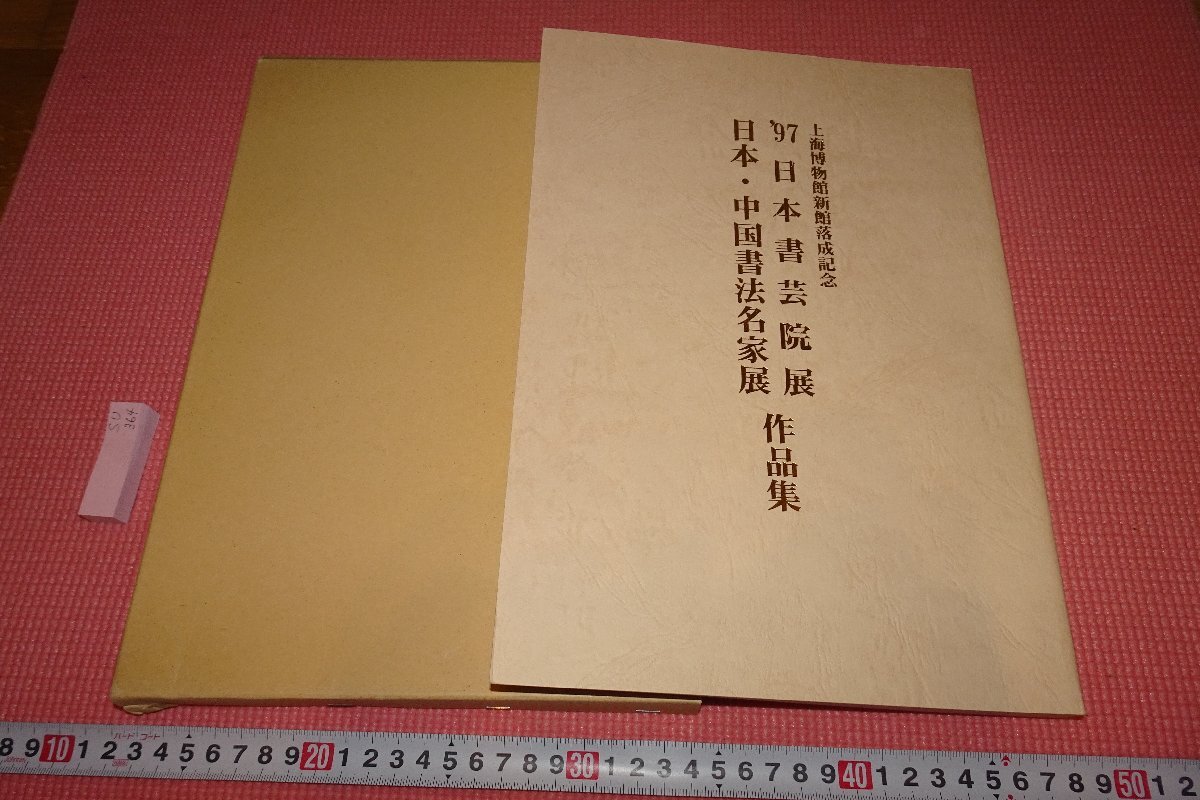 上海博物館新館落成記念
'97日本書芸院展
日本・中国書法名家展
作品集
SU
364
8 9 10 1 2 3 4 5 6 7 8 9 20 1 2 3 4 5 6 7 8 9 30 1 2 3 4 5 6 7 8 9 40 1 2 3 4 5 6 7 8 9 50 1 2
ハード コート